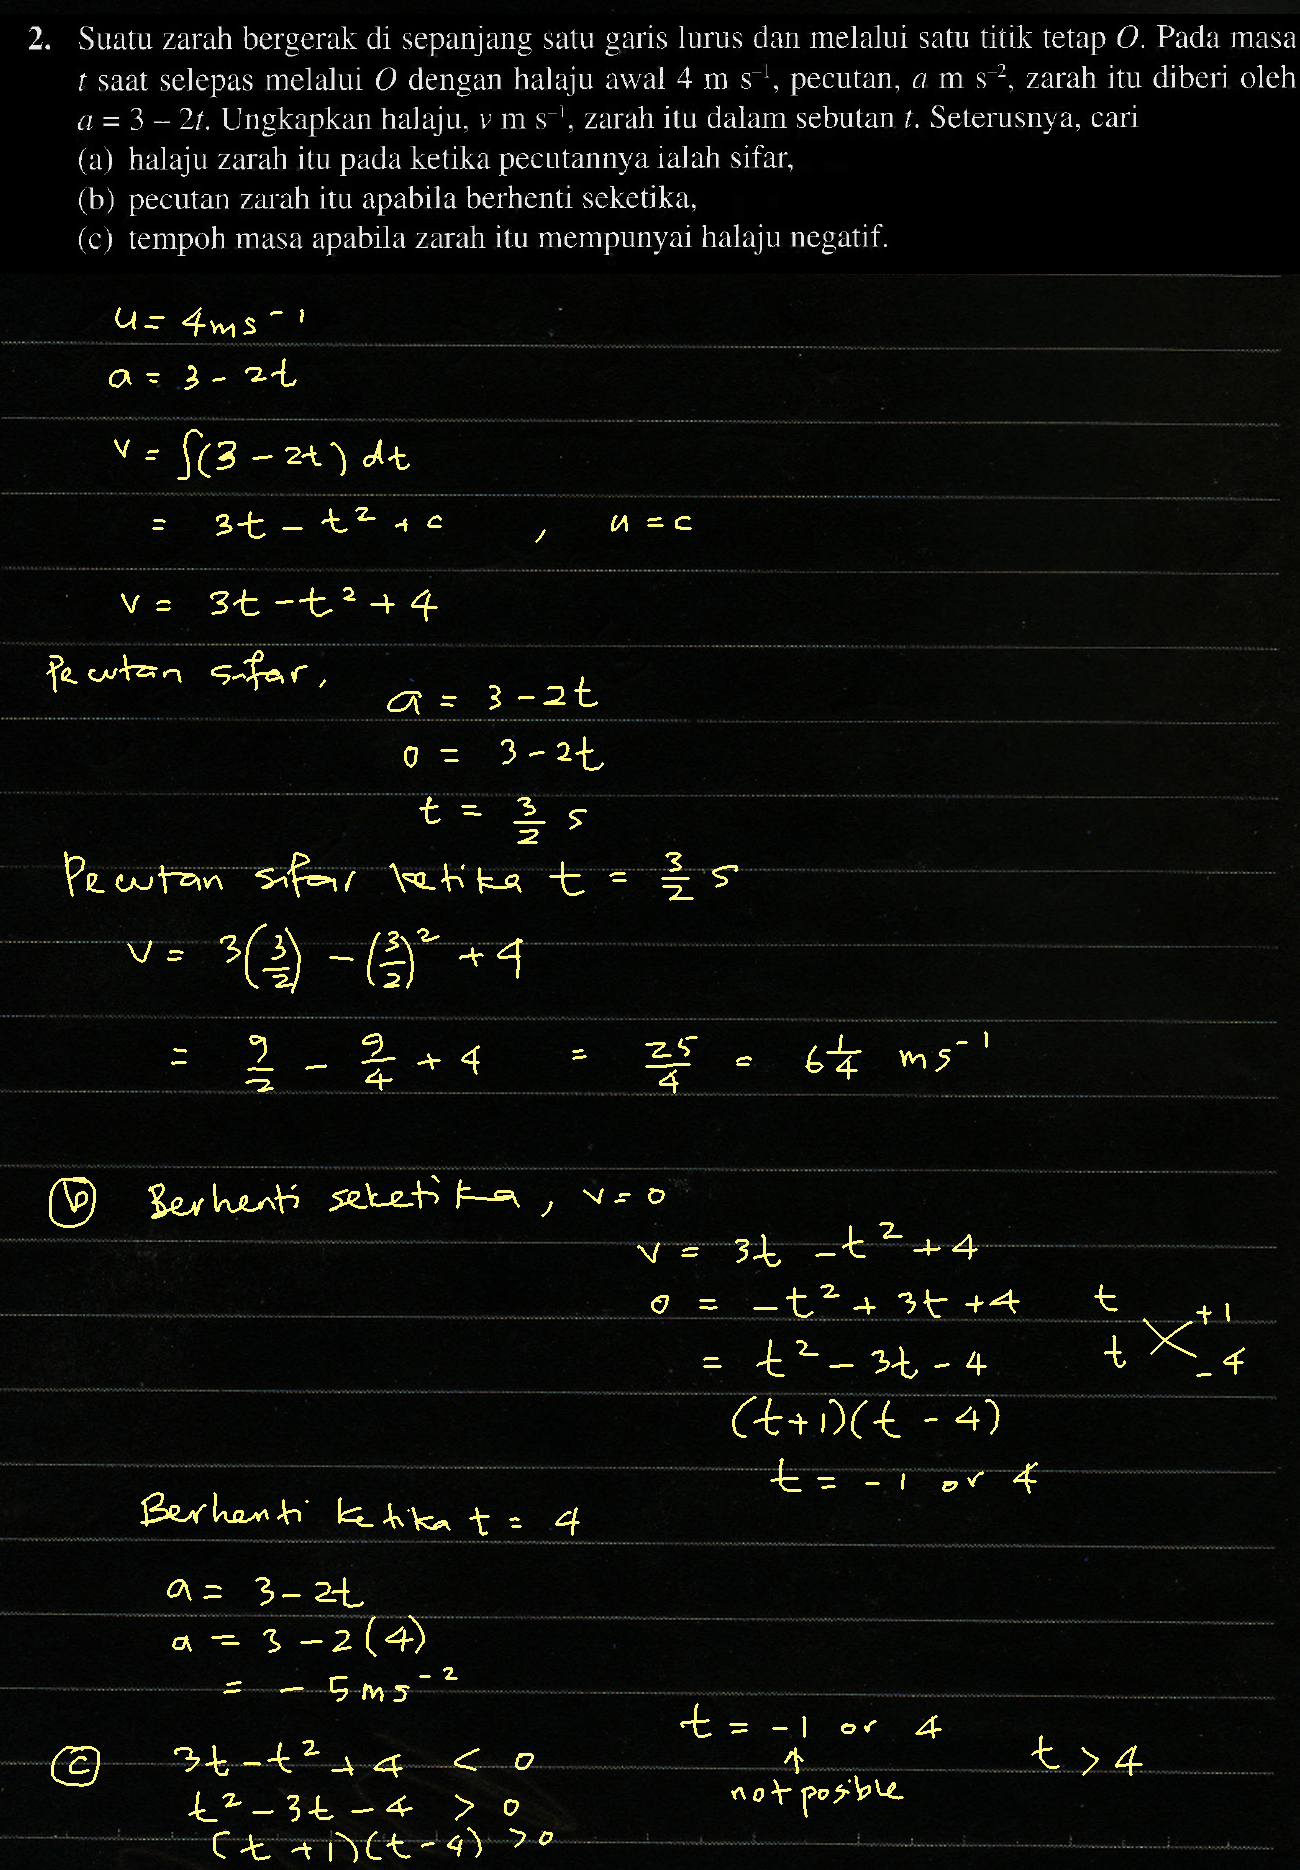 2. Suatu zarah bergerak di sepanjang satu garis lurus dan melalui satu titik tetap O. Pada masa
t saat selepas melalui O dengan halaju awal 4 m s⁻¹, pecutan, a m s⁻², zarah itu diberi oleh
a = 3 – 2t. Ungkapkan halaju, v m s⁻¹, zarah itu dalam sebutan t. Seterusnya, cari
(a) halaju zarah itu pada ketika pecutannya ialah sifar,
(b) pecutan zarah itu apabila berhenti seketika,
(c) tempoh masa apabila zarah itu mempunyai halaju negatif.
u = 4ms⁻¹
a = 3 - 2t
v = ∫(3 - 2t) dt
= 3t - t² + c , u = c
v = 3t - t² + 4
Pecutan sifar,
a = 3 - 2t
0 = 3 - 2t
t = 3/2 s
Pecutan sifar ketika t = 3/2 s
v = 3(3/2) - (3/2)² + 4
= 9/2 - 9/4 + 4 = 25/4 = 6 1/4 ms⁻¹
(b) Berhenti seketika, v = 0
v = 3t - t² + 4
0 = -t² + 3t + 4 t +1
= t² - 3t - 4 t -4
(t+1)(t - 4)
t = -1 or 4
Berhenti ketika t = 4
a = 3 - 2t
a = 3 - 2(4)
= - 5ms⁻²
t = -1 or 4
(c) 3t - t² + 4 < 0 ↑ t > 4
t² - 3t - 4 > 0 not posible
(t + 1)(t - 4) > 0